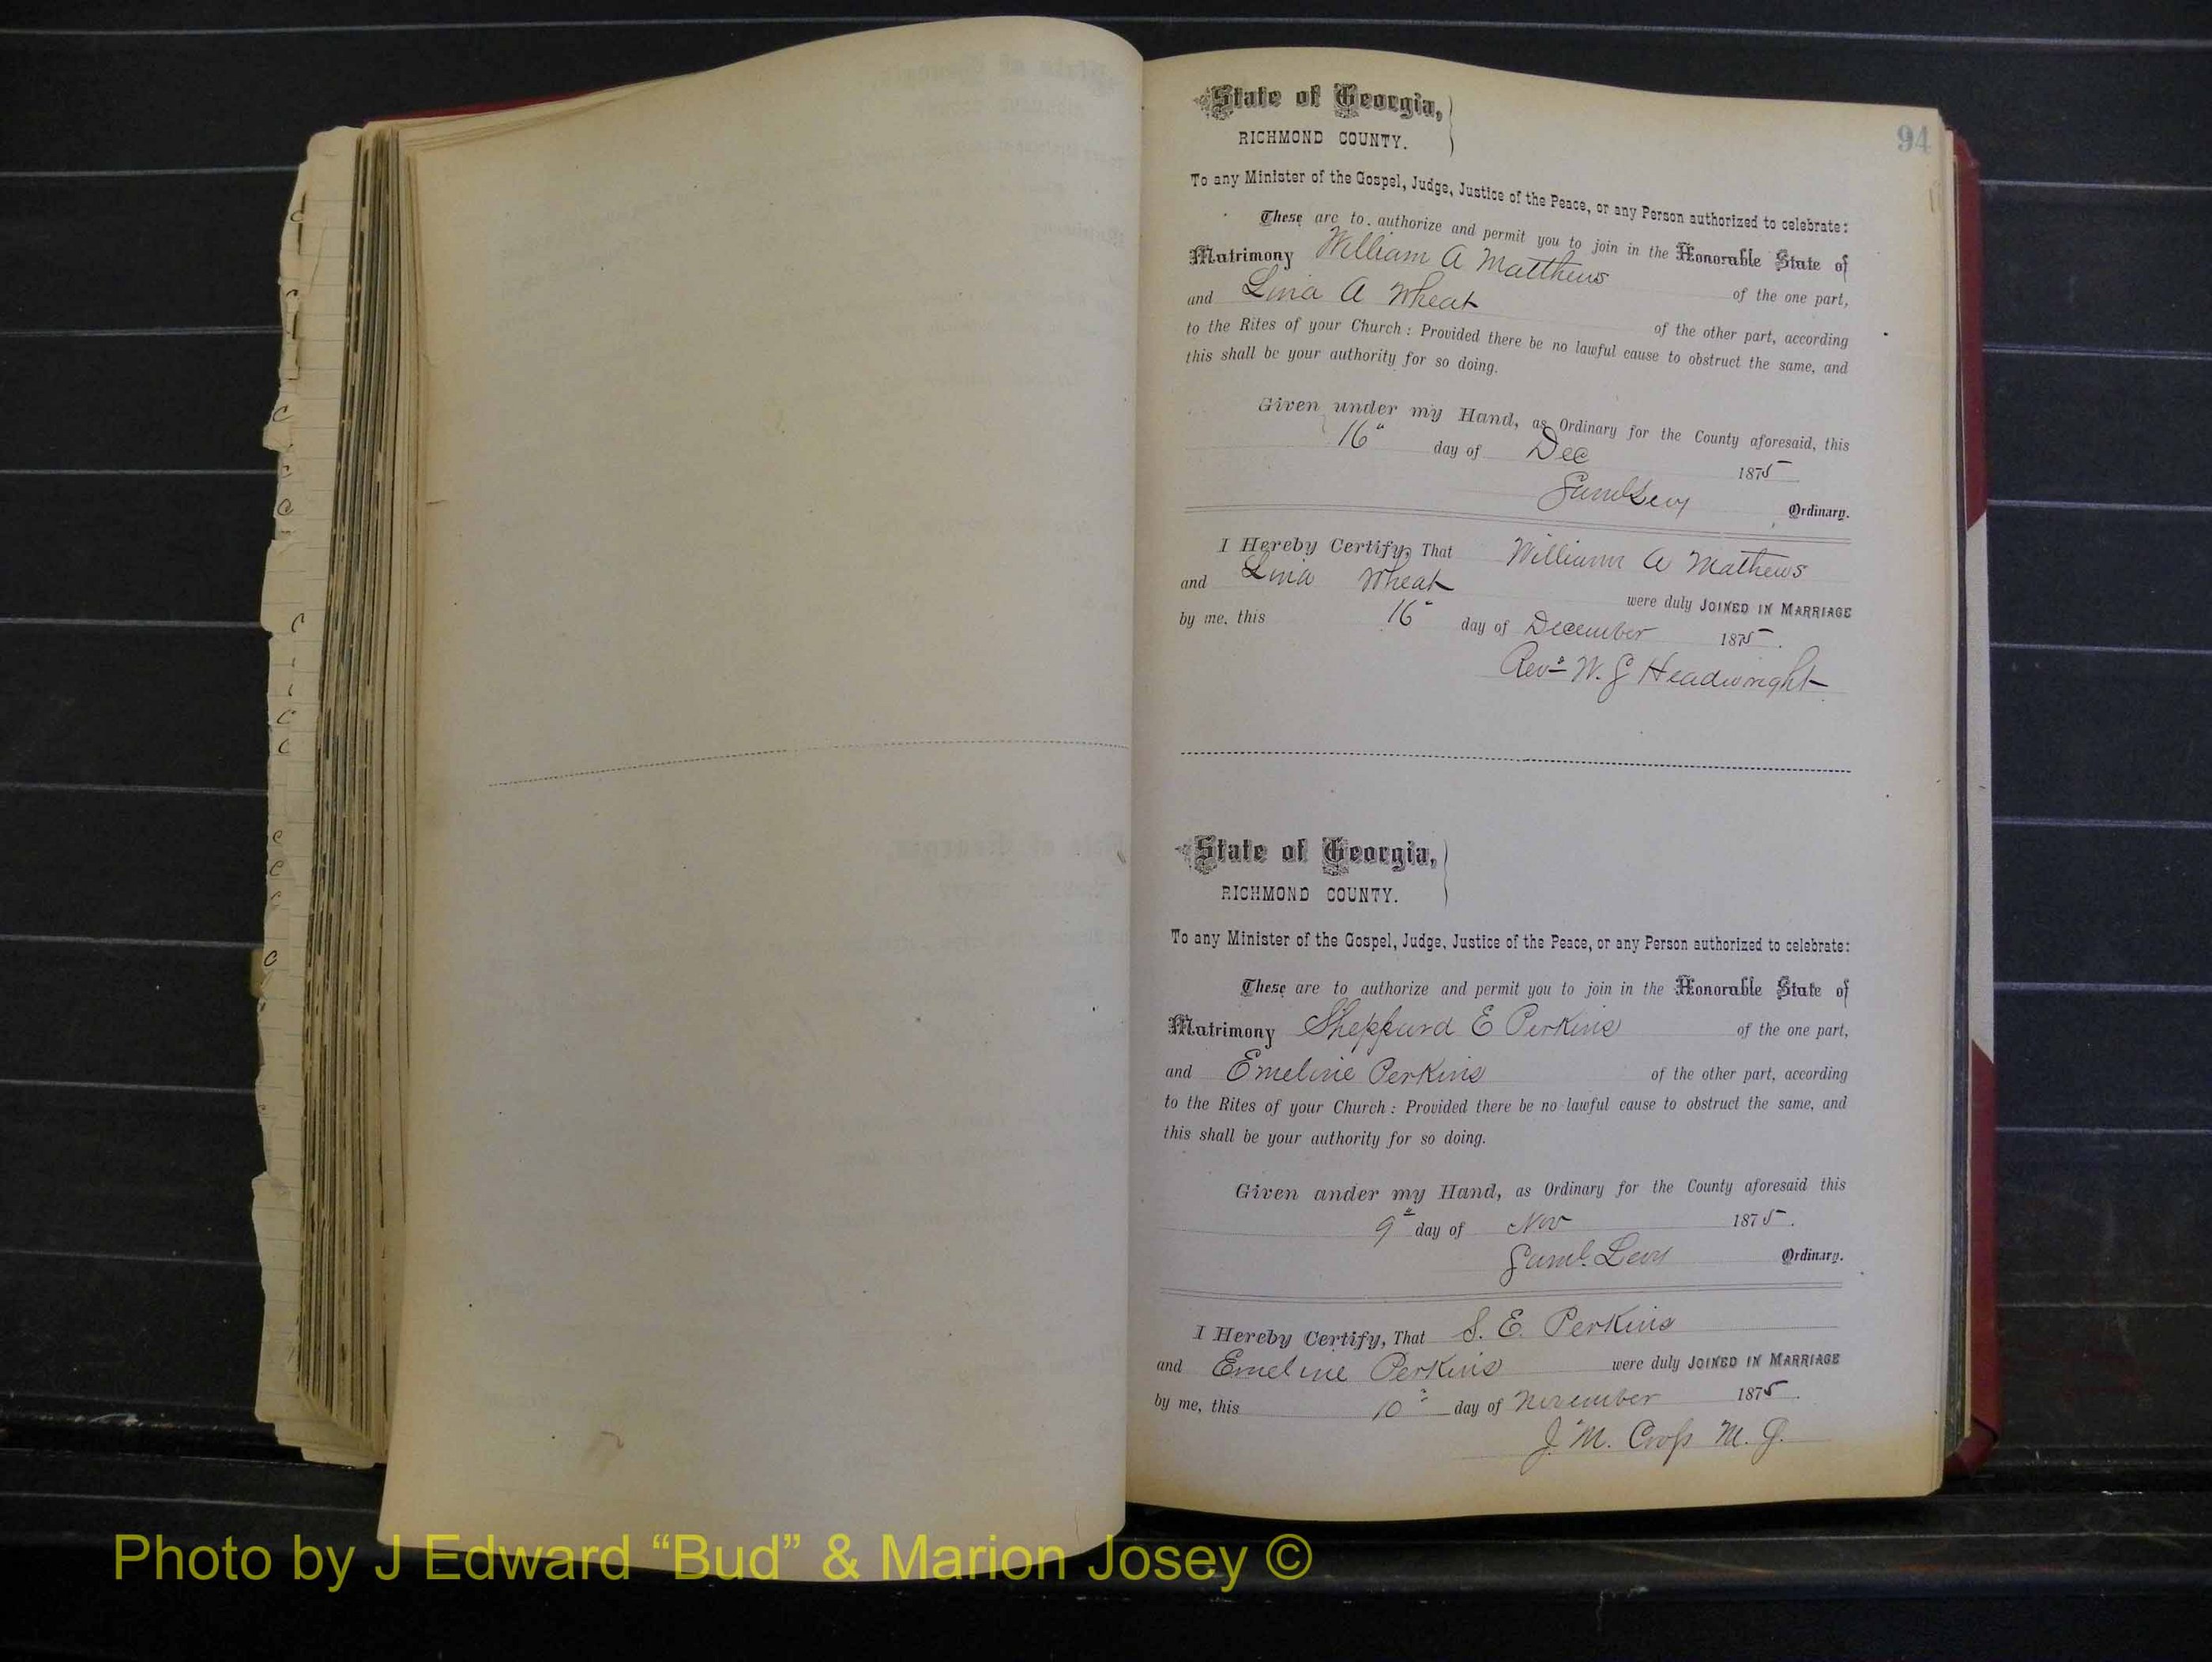 94
State of Georgia,
RICHMOND COUNTY.
To any Minister of the Gospel, Judge, Justice of the Peace, or any Person authorized to celebrate:
These are to authorize and permit you to join in the Honorable State of
Matrimony William A Matthews of the one part,
and Livia A Wheat of the other part, according
to the Rites of your Church: Provided there be no lawful cause to obstruct the same, and
this shall be your authority for so doing.
Given under my Hand, as Ordinary for the County aforesaid, this
16" day of Dec 1875
Saml Levy Ordinary.
I Hereby Certify, That William A Mathews
and Livia Wheat were duly JOINED IN MARRIAGE
by me, this 16" day of December 1875.
Revd W. J Headwright
State of Georgia,
RICHMOND COUNTY.
To any Minister of the Gospel, Judge, Justice of the Peace, or any Person authorized to celebrate:
These are to authorize and permit you to join in the Honorable State of
Matrimony Sheppard E Perkins of the one part,
and Emeline Perkins of the other part, according
to the Rites of your Church: Provided there be no lawful cause to obstruct the same, and
this shall be your authority for so doing.
Given under my Hand, as Ordinary for the County aforesaid this
9" day of Nov 1875.
Saml. Levy Ordinary.
I Hereby Certify, That S. E. Perkins
and Emeline Perkins were duly JOINED IN MARRIAGE
by me, this 10" day of November 1875.
J. M. Cross M. G.
Photo by J Edward “Bud” & Marion Josey ©